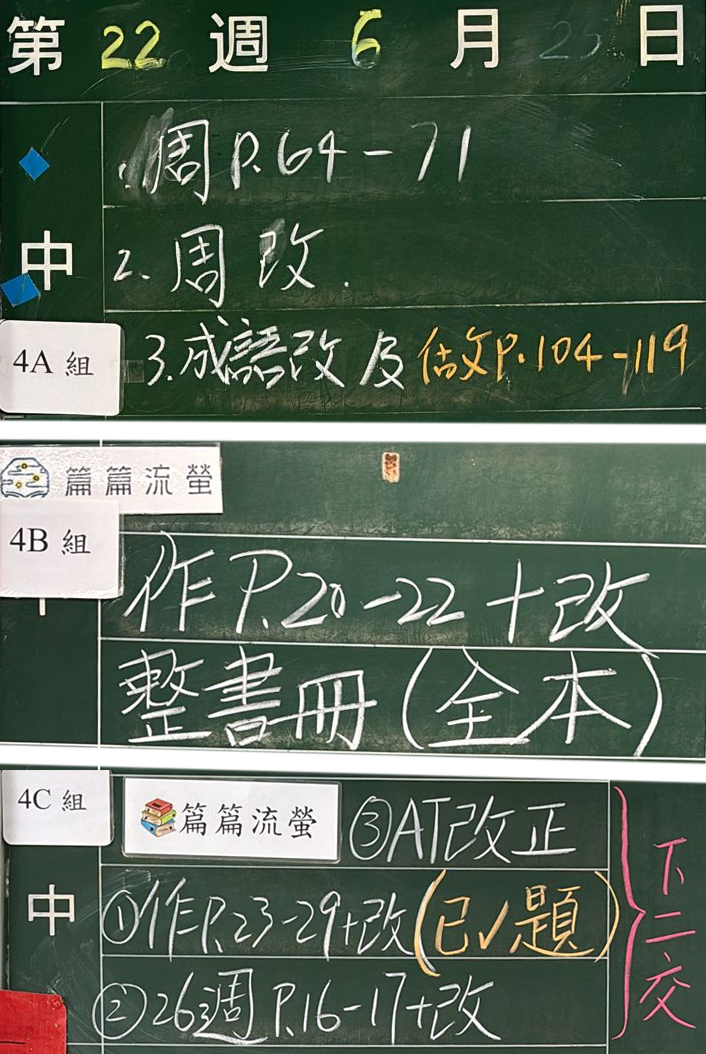 第 22 週 6 月 25 日
1.周 P.64-71
中
2. 周改.
4A 組
3.成語改及估文P.104-119
篇篇流螢
4B 組
作P.20-22+改
整書冊(全本)
4C 組
篇篇流螢
③AT改正
中
①作P.23-29+改(已✓題)
②26週P.16-17+改
下二交